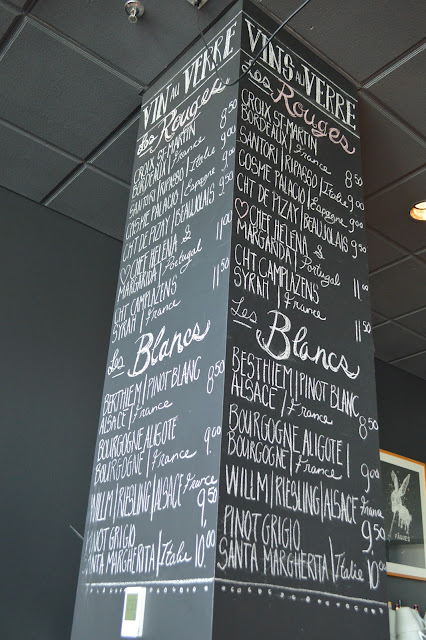 VIN AU VERRE
Les Rouges
CROIX ST-MARTIN
BORDEAUX / France 8 50
SANTORI / RIPASSO / Italie 9 00
COSME PALACIO / Espagne 9 00
CHT DE PIZAY / BEAUJOLAIS 9 50
♡ CHEF HELENA &
MARGARIDA / Portugal 11 00
CHT CAMPLAZENS
SYRAH / France 11 50
Les Blancs
BERTHIEM / PINOT BLANC
ALSACE / France 8 50
BOURGOGNE ALIGOTE
BOURGOGNE / France 9 00
WILLM / RIESLING / ALSACE France 9 50
PINOT GRIGIO
SANTA MARGHERITA / Italie 10 00
VINS AU VERRE
Les Rouges
CROIX ST-MARTIN
BORDEAUX / France 8 50
SANTORI / RIPASSO / Italie 9 00
COSME PALACIO / Espagne 9 00
CHT DE PIZAY / BEAUJOLAIS 9 50
♡ CHEF HELENA &
MARGARIDA / Portugal 11 00
CHT CAMPLAZENS
SYRAH / France 11 50
Les Blancs
BESTHIEM / PINOT BLANC
ALSACE / France 8 50
BOURGOGNE ALIGOTE /
BOURGOGNE / France 9 00
WILLM / RIESLING / ALSACE France 9 50
PINOT GRIGIO
SANTA MARGHERITA / Italie 10 00